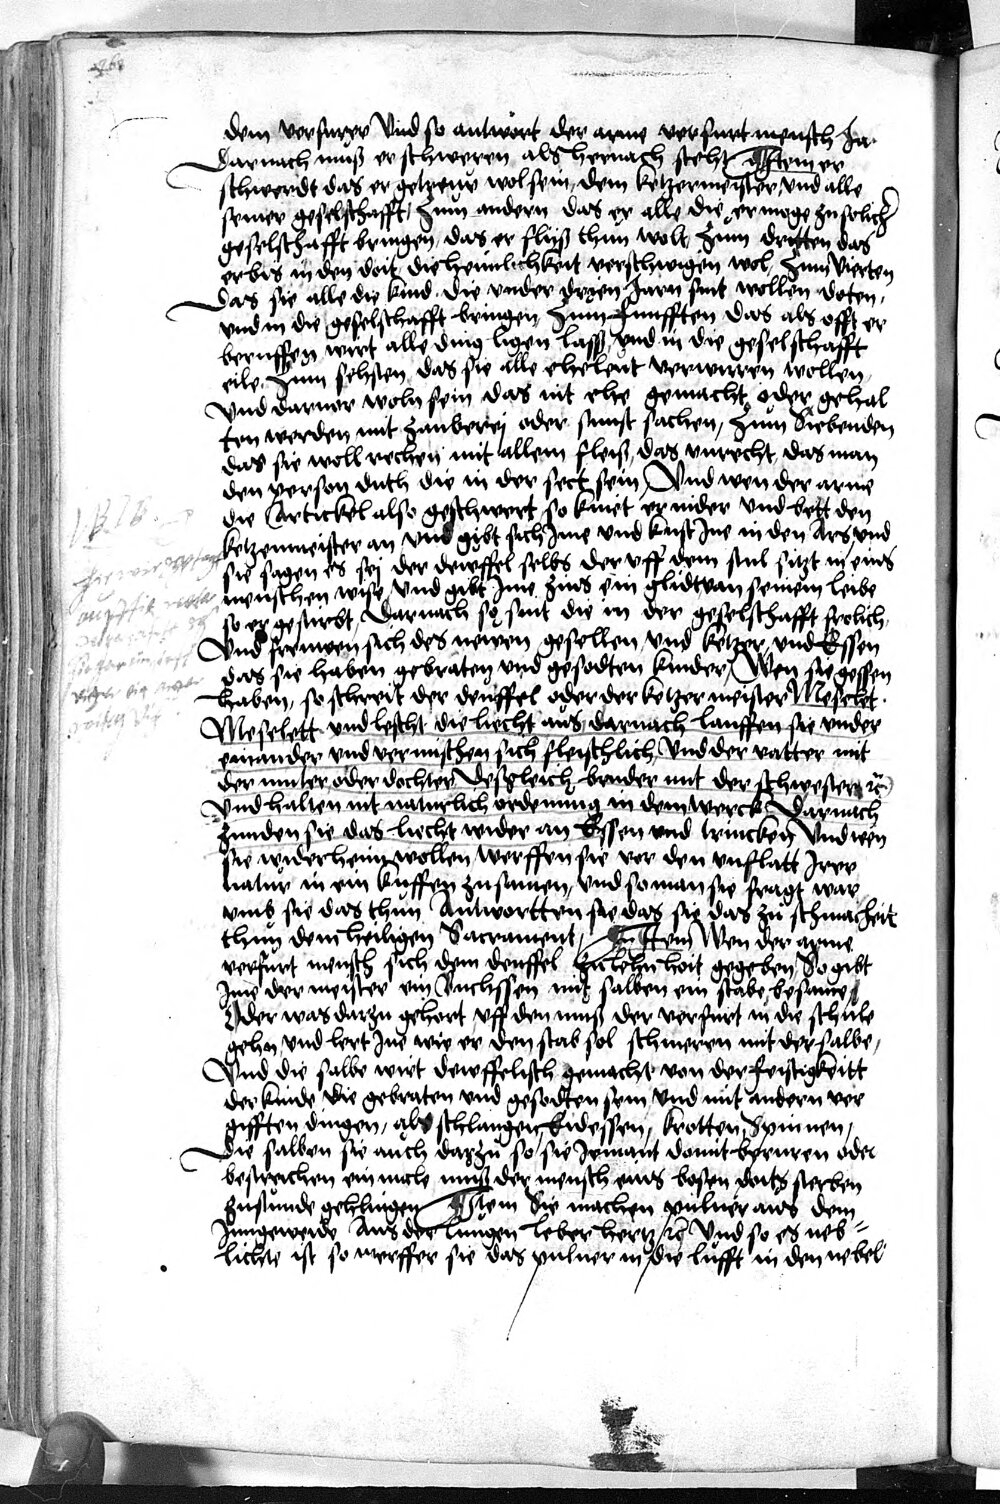 dem verfurer Vnd so antwort der arme verfurt mensch Ja
Darnach muß er schweren als hernach steht Item er
schwerdt das er getreuw wol sein, dem ketzermeister, vnd alle
seiner geselschafft, Zum andern das er alle die er moge zu solicher
geselschafft bringen, das er fliß thun wolt, Zum dritten das
er bis in den doit, die heimlichkeit verschwigen wol, Zum vierten
Das sie alle die kind, die vnder dryen Jarn sint wollen doten,
vnd in die geselschafft bringen, Zum funfften das als offt er
beruffen wirt alle ding ligen lass, vnd in die geselschafft
eile, Zum sehsten, das sie alle eheleut verwurren wollen,
Vnd darvor woln sein das nit ehe gemacht, oder gehal
ten werden mit zauberej oder sunst sachen, Zum Siebenden
das sie woll rechen mit allem fleiß, das vnrecht, das man
den person duth die in der sect sein, Vnd wen der arme
die Artickel also geschwert so knuet er nider vnd bett den
ketzermeister an vnd gibt sich Ime vnd kust Ine in den Ars vnd
sie sagen es sej der dewffel selbs der vff dem stul sitzt in eins
menschen wise, Vnd gibt Ime zins ein glidt van seinem leibe
so er gestirbt, Darnach so sint die in der geselschafft frolich,
Vnd freuwen sich des newen gesellen, vnd ketzer, vnd Essen
das sie haben gebraten vnd gesodten kinder, Wen sie gessen
haben, so schreit der deuffel oder der ketzermeister Meselet
Meselett vnd lescht die liecht aus darnach lauffen sie vnder
einander vnd vermischen sich fleischlich, Vnd der vatter mit
der muter oder dochter, Desgleich bruder mit der schwester rc
Vnd halten nit naturlich ordenung in dem werck Darnach
zunden sie das liecht wider an Essen vnd trincken, Vnd wen
sie wider heim wollen werffen sie vor den vnflatt Irer
natur in ein kuffen zusamen, vnd so man sie fragt war
vmb sie das thun Antwortten sie das sie das zu schmacheit
thun dem heiligen Sacrament, Item Wen der arme
verfurt mensch sich dem deuffel zu lehn hoit gegeben, So gibt
Ime der meister ein Buchssen mit salben ein stabe, besame,
Oder was darzu gehort, vff den muß der verfurt in die schule
gehn, vnd lert Ine wie er den stab sol schmeren mit der salbe,
Vnd die salbe wirt dewffelisch gemacht von der feistigkeitt
der kinde die gebraten vnd gesodten sein vnd mit andern ver
gifften dingen, als schlangen, Eidessen, krotten, Spinnen,
Die salben sie auch darzu so sie Jemant domit beruren oder
bestreichen ein male muß der mensch eins bosen doits sterben
zustunde gehlingen, Item Sie machen puluer aus dem
Jungeweide Aus der lungen leber hertz rc Vnd so es neb-
lichte ist so werffer sie das puluer in die lufft in den nebel